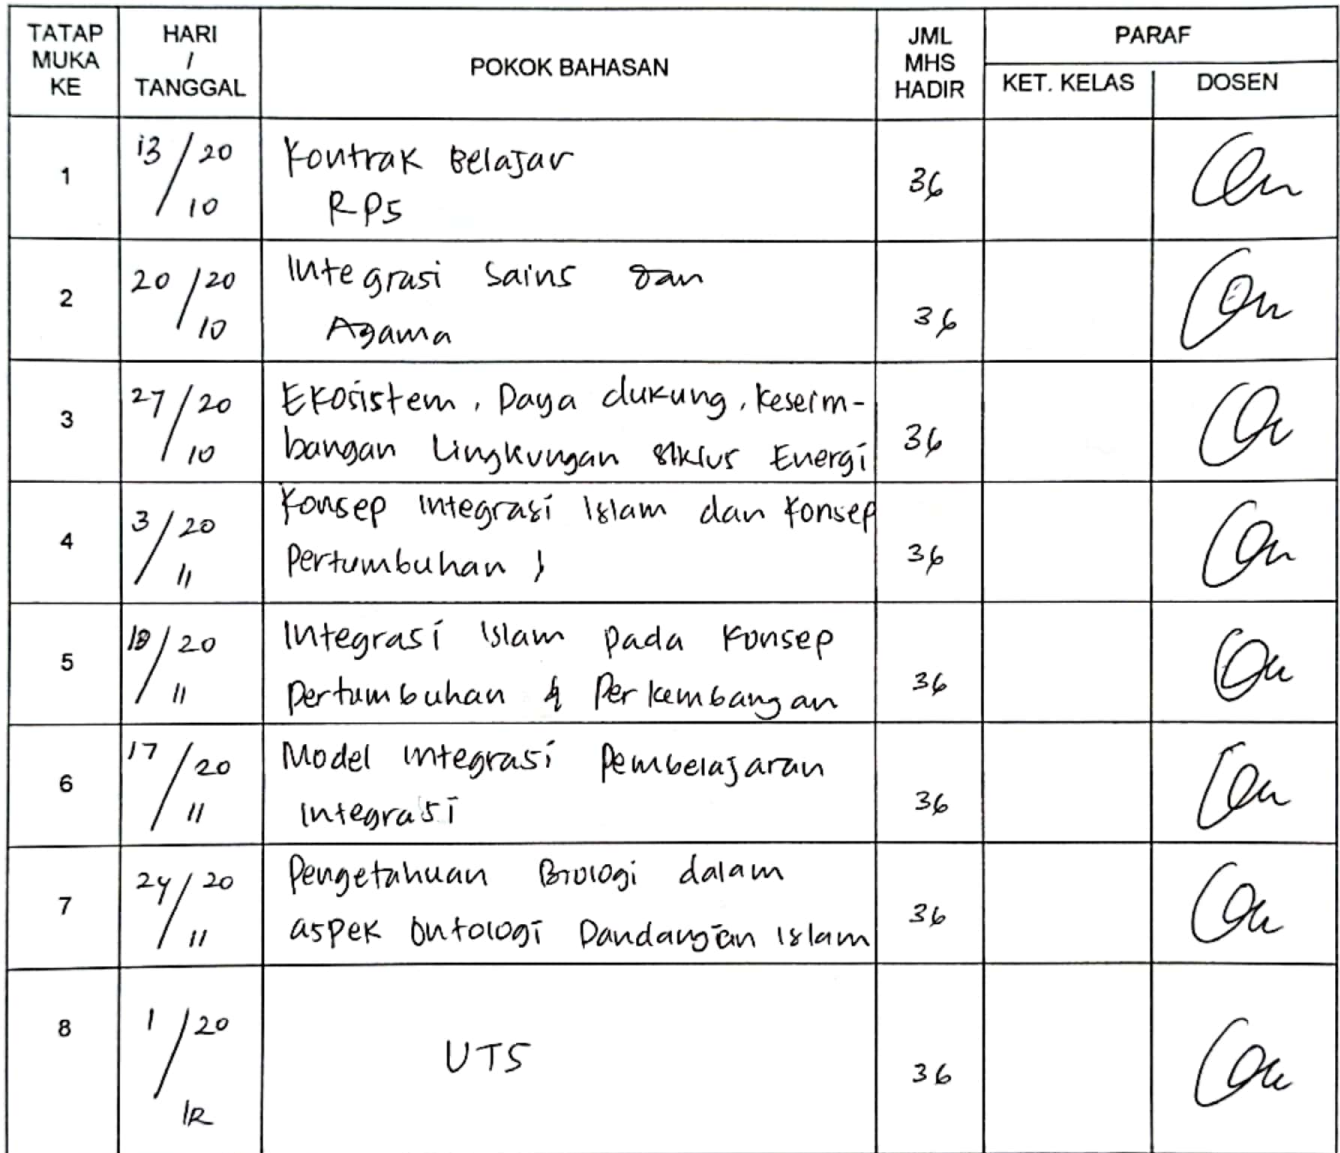 TATAP MUKA KE
HARI / TANGGAL
POKOK BAHASAN
JML MHS HADIR
PARAF
KET. KELAS
DOSEN
1
13/20
10
Kontrak Belajar
RPS
36
2
20/20
10
Integrasi Sains dan
Agama
36
3
27/20
10
Ekosistem, Daya dukung, keseim-
bangan Lingkungan siklus Energi
36
4
3/20
11
Konsep Integrasi Islam dan Konsep
Pertumbuhan
36
5
/20
11
Integrasi Islam pada Konsep
Pertumbuhan & Perkembangan
36
6
17/20
11
Model Integrasi Pembelajaran
Integrasi
36
7
24/20
11
Pengetahuan Biologi dalam
aspek Ontologi Pandangan Islam
36
8
1/20
12
UTS
36